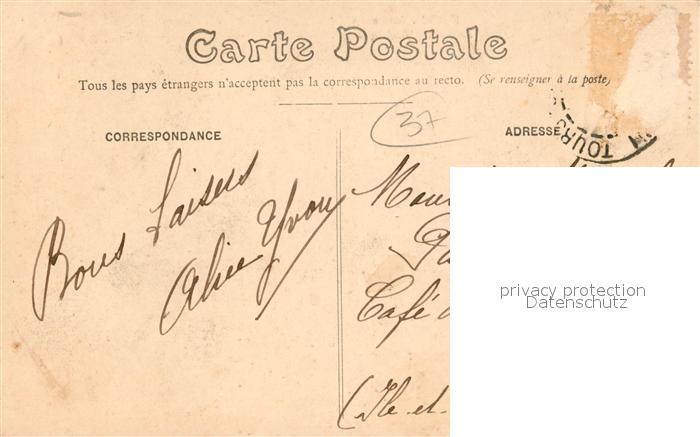 Carte Postale
Tous les pays étrangers n'acceptent pas la correspondance au recto. (Se renseigner à la poste)
37
CORRESPONDANCE
ADRESSE
TOURS
Bons baisers
Alice Yvon
Café
(Ile-et-
privacy protection
Datenschutz